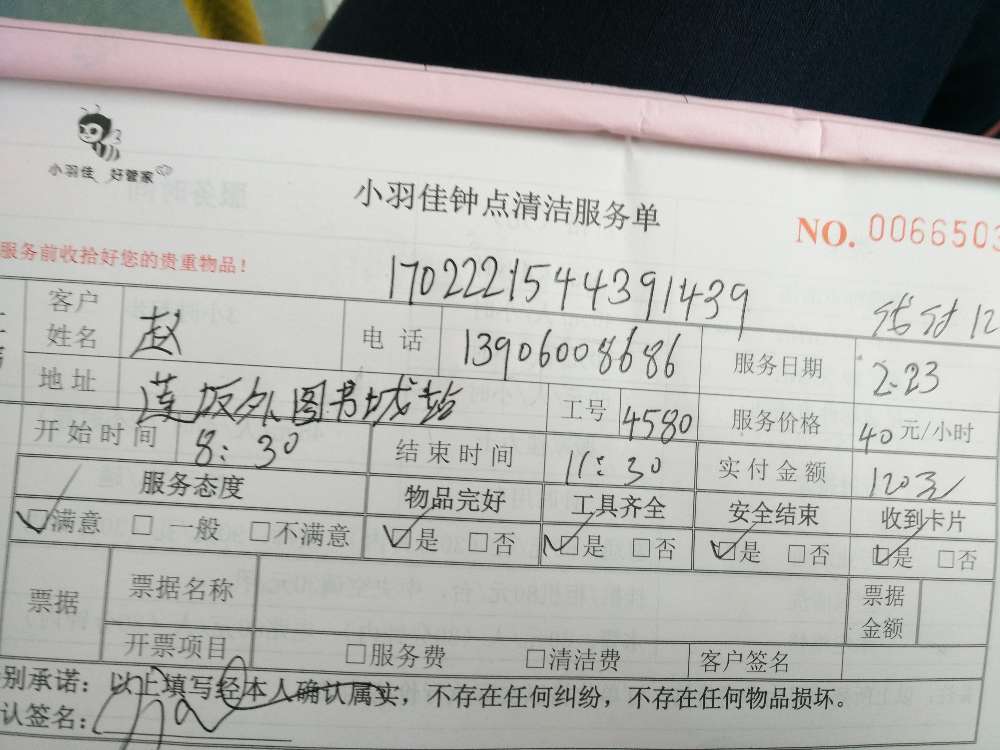 小羽佳 好管家
小羽佳钟点清洁服务单
NO. 0066503
服务前收拾好您的贵重物品!
170222154439 1439
客户姓名 赵 电话 13906008686 服务日期 2.23
地址 莲坂外图书城站 工号 4580 服务价格 40元/小时
开始时间 8:30 结束时间 11:30 实付金额 120元
服务态度 物品完好 工具齐全 安全结束 收到卡片
☑满意 □一般 □不满意 ☑是 □否 ☑是 □否 ☑是 □否 ☑是 □否
票据 票据名称 票据金额
开票项目 □服务费 □清洁费 客户签名
别承诺：以上填写经本人确认属实，不存在任何纠纷，不存在任何物品损坏。
认签名：